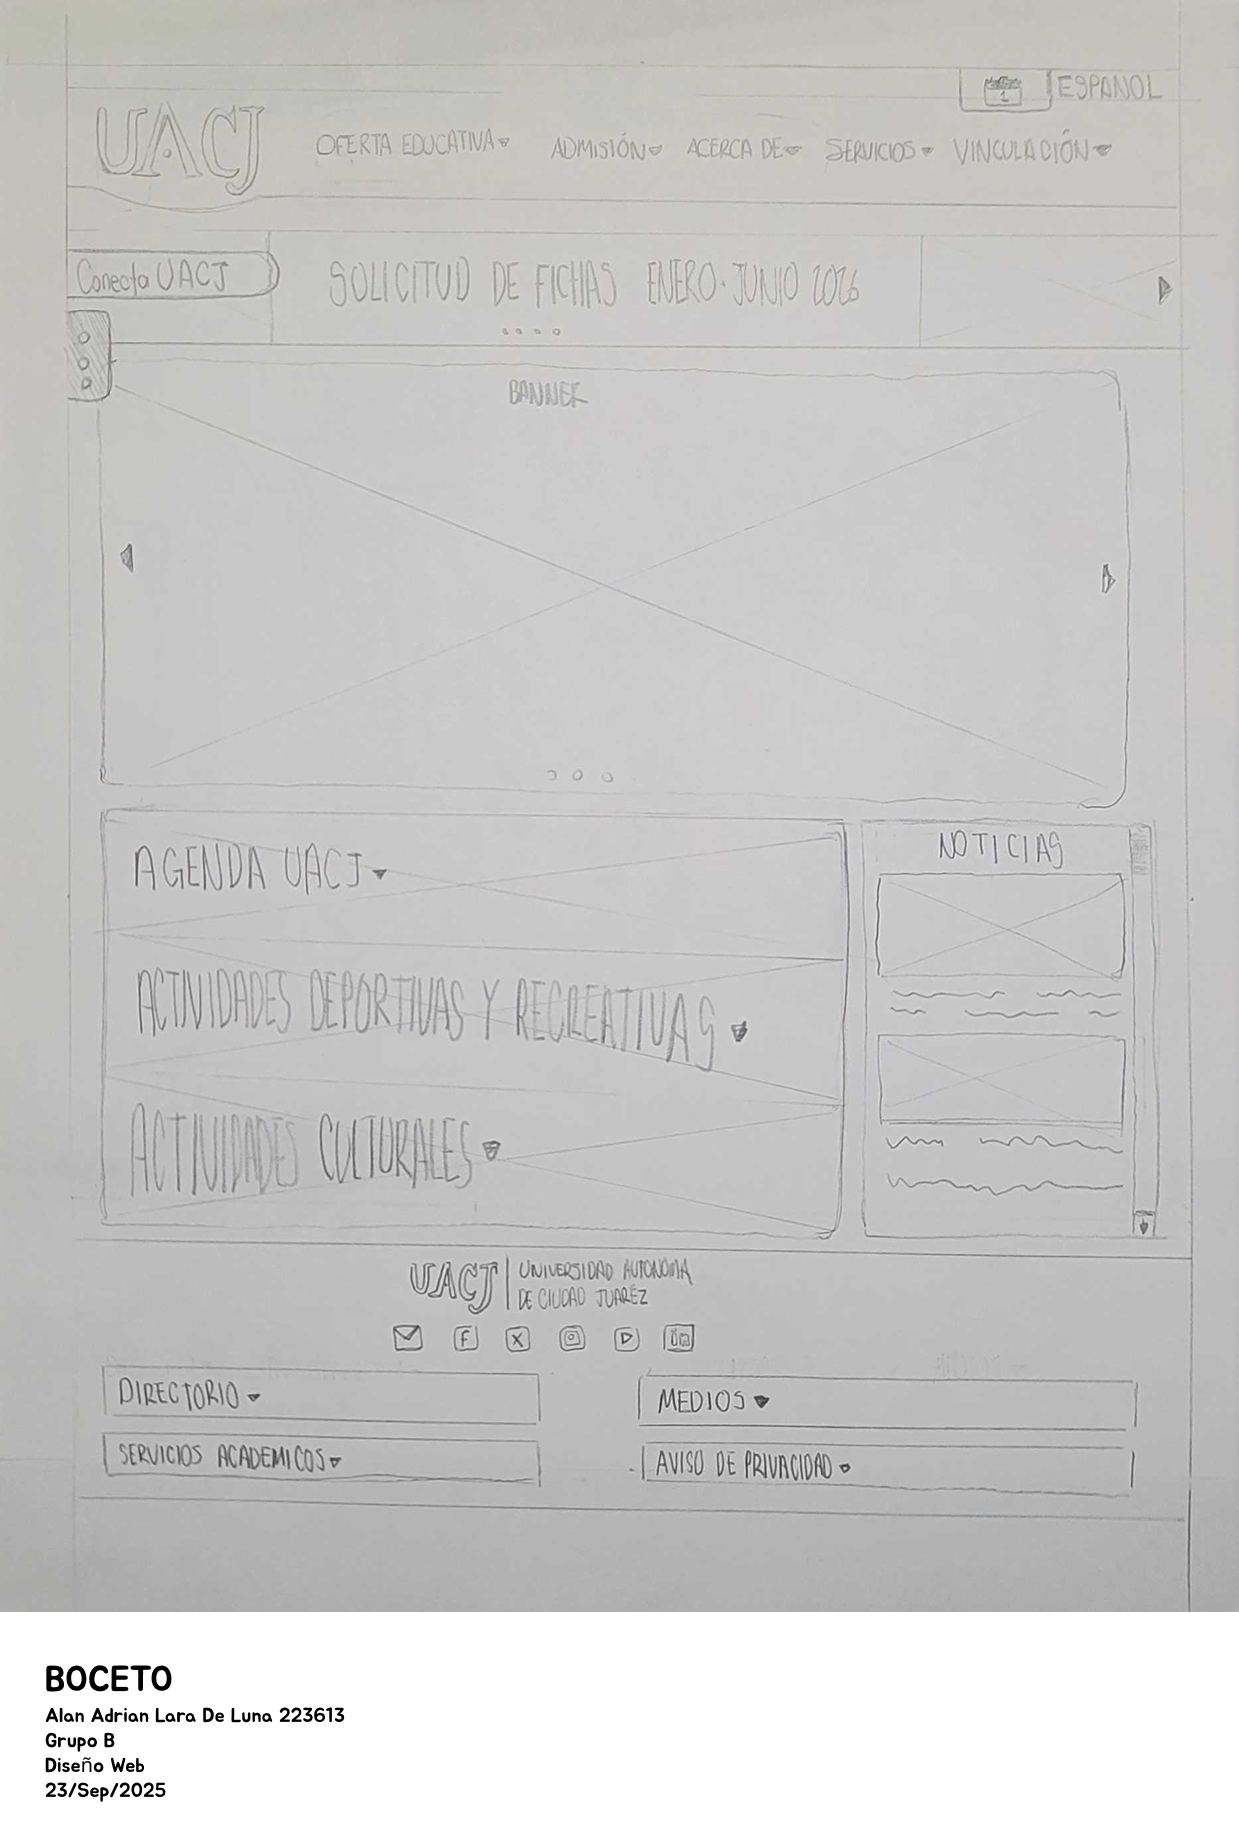 1
ESPAÑOL
UACJ
OFERTA EDUCATIVA ADMISIÓN ACERCA DE SERVICIOS VINCULACIÓN
Conecta UACJ
SOLICITUD DE FICHAS ENERO-JUNIO 2026
BANNER
AGENDA UACJ
NOTICIAS
ACTIVIDADES DEPORTIVAS Y RECREATIVAS
ACTIVIDADES CULTURALES
UACJ
UNIVERSIDAD AUTONOMA
DE CIUDAD JUAREZ
f X in
DIRECTORIO
MEDIOS
SERVICIOS ACADEMICOS
AVISO DE PRIVACIDAD
BOCETO
Alan Adrian Lara De Luna 223613
Grupo B
Diseño Web
23/Sep/2025